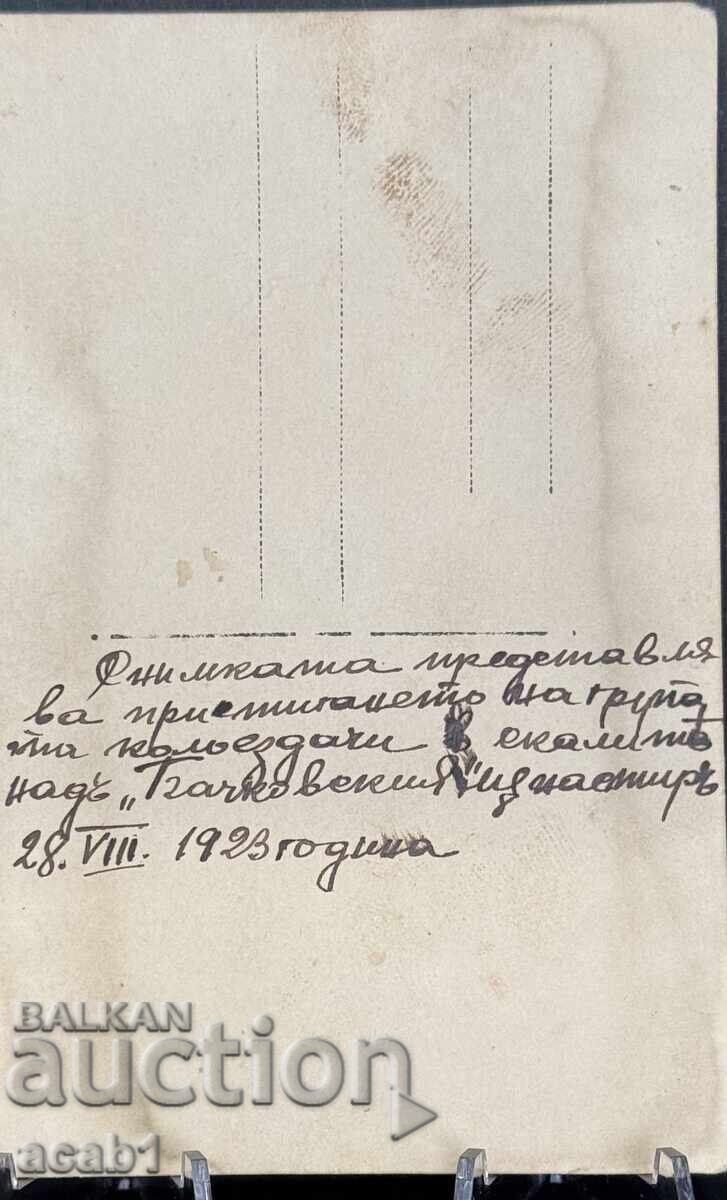 Снимката представля
ва пристигането на група
та колоездачи в скалитѣ
надъ „Бачковския" мѫнастиръ
28. VIII. 1923 година
BALKAN
auction
acab1